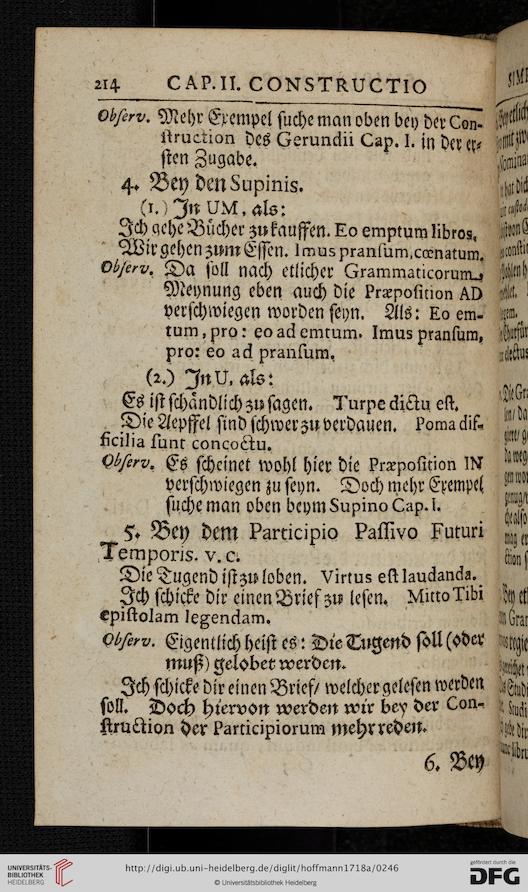 214 CAP. II. CONSTRUCTIO
Observ. Mehr Exempel suche man oben bey der Con-
struction des Gerundii Cap. I. in der er-
sten Zugabe.
4. Bey den Supinis.
(1.) In UM, als:
Ich gehe Bücher zu kauffen. Eo emptum libros.
Wir gehen zum Essen. Imus pransum, cœnatum.
Observ. Da soll nach etlicher Grammaticorum
Meynung eben auch die Præposition AD
verschwiegen worden seyn. Als: Eo em-
tum, pro: eo ad emtum. Imus pransum,
pro: eo ad pransum.
(2.) In U, als:
Es ist schändlich zu sagen. Turpe dictu est.
Die Aepffel sind schwer zu verdauen. Poma dif-
ficilia sunt concoctu.
Observ. Es scheinet wohl hier die Præposition IN
verschwiegen zu seyn. Doch mehr Exempel
suche man oben beym Supino Cap. I.
5. Bey dem Participio Passivo Futuri
Temporis. v. c.
Die Tugend ist zu loben. Virtus est laudanda.
Ich schicke dir einen Brief zu lesen. Mitto Tibi
epistolam legendam.
Observ. Eigentlich heist es: Die Tugend soll (oder
muß) gelobet werden.
Ich schicke dir einen Brief/ welcher gelesen werden
soll. Doch hiervon werden wir bey der Con-
struction der Participiorum mehr reden.
6. Bey
UNIVERSITÄTS-
BIBLIOTHEK
HEIDELBERG
http://digi.ub.uni-heidelberg.de/diglit/hoffmann1718a/0246
© Universitätsbibliothek Heidelberg
gefördert durch die
DFG